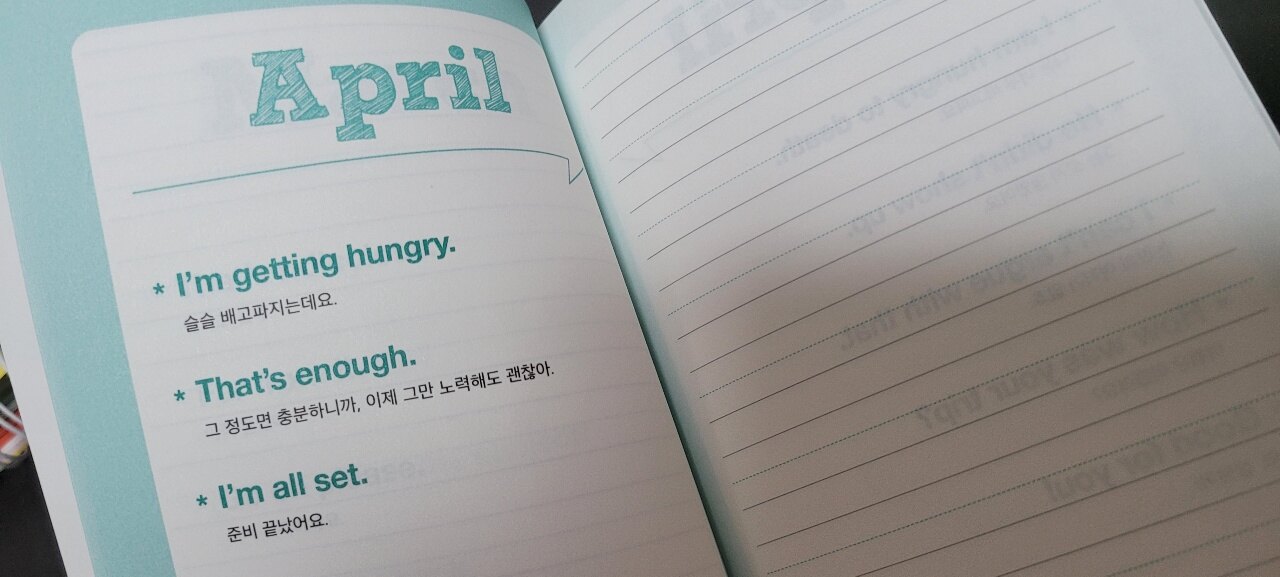 April
* I'm getting hungry.
슬슬 배고파지는데요.
* That's enough.
그 정도면 충분하니까, 이제 그만 노력해도 괜찮아.
* I'm all set.
준비 끝났어요.